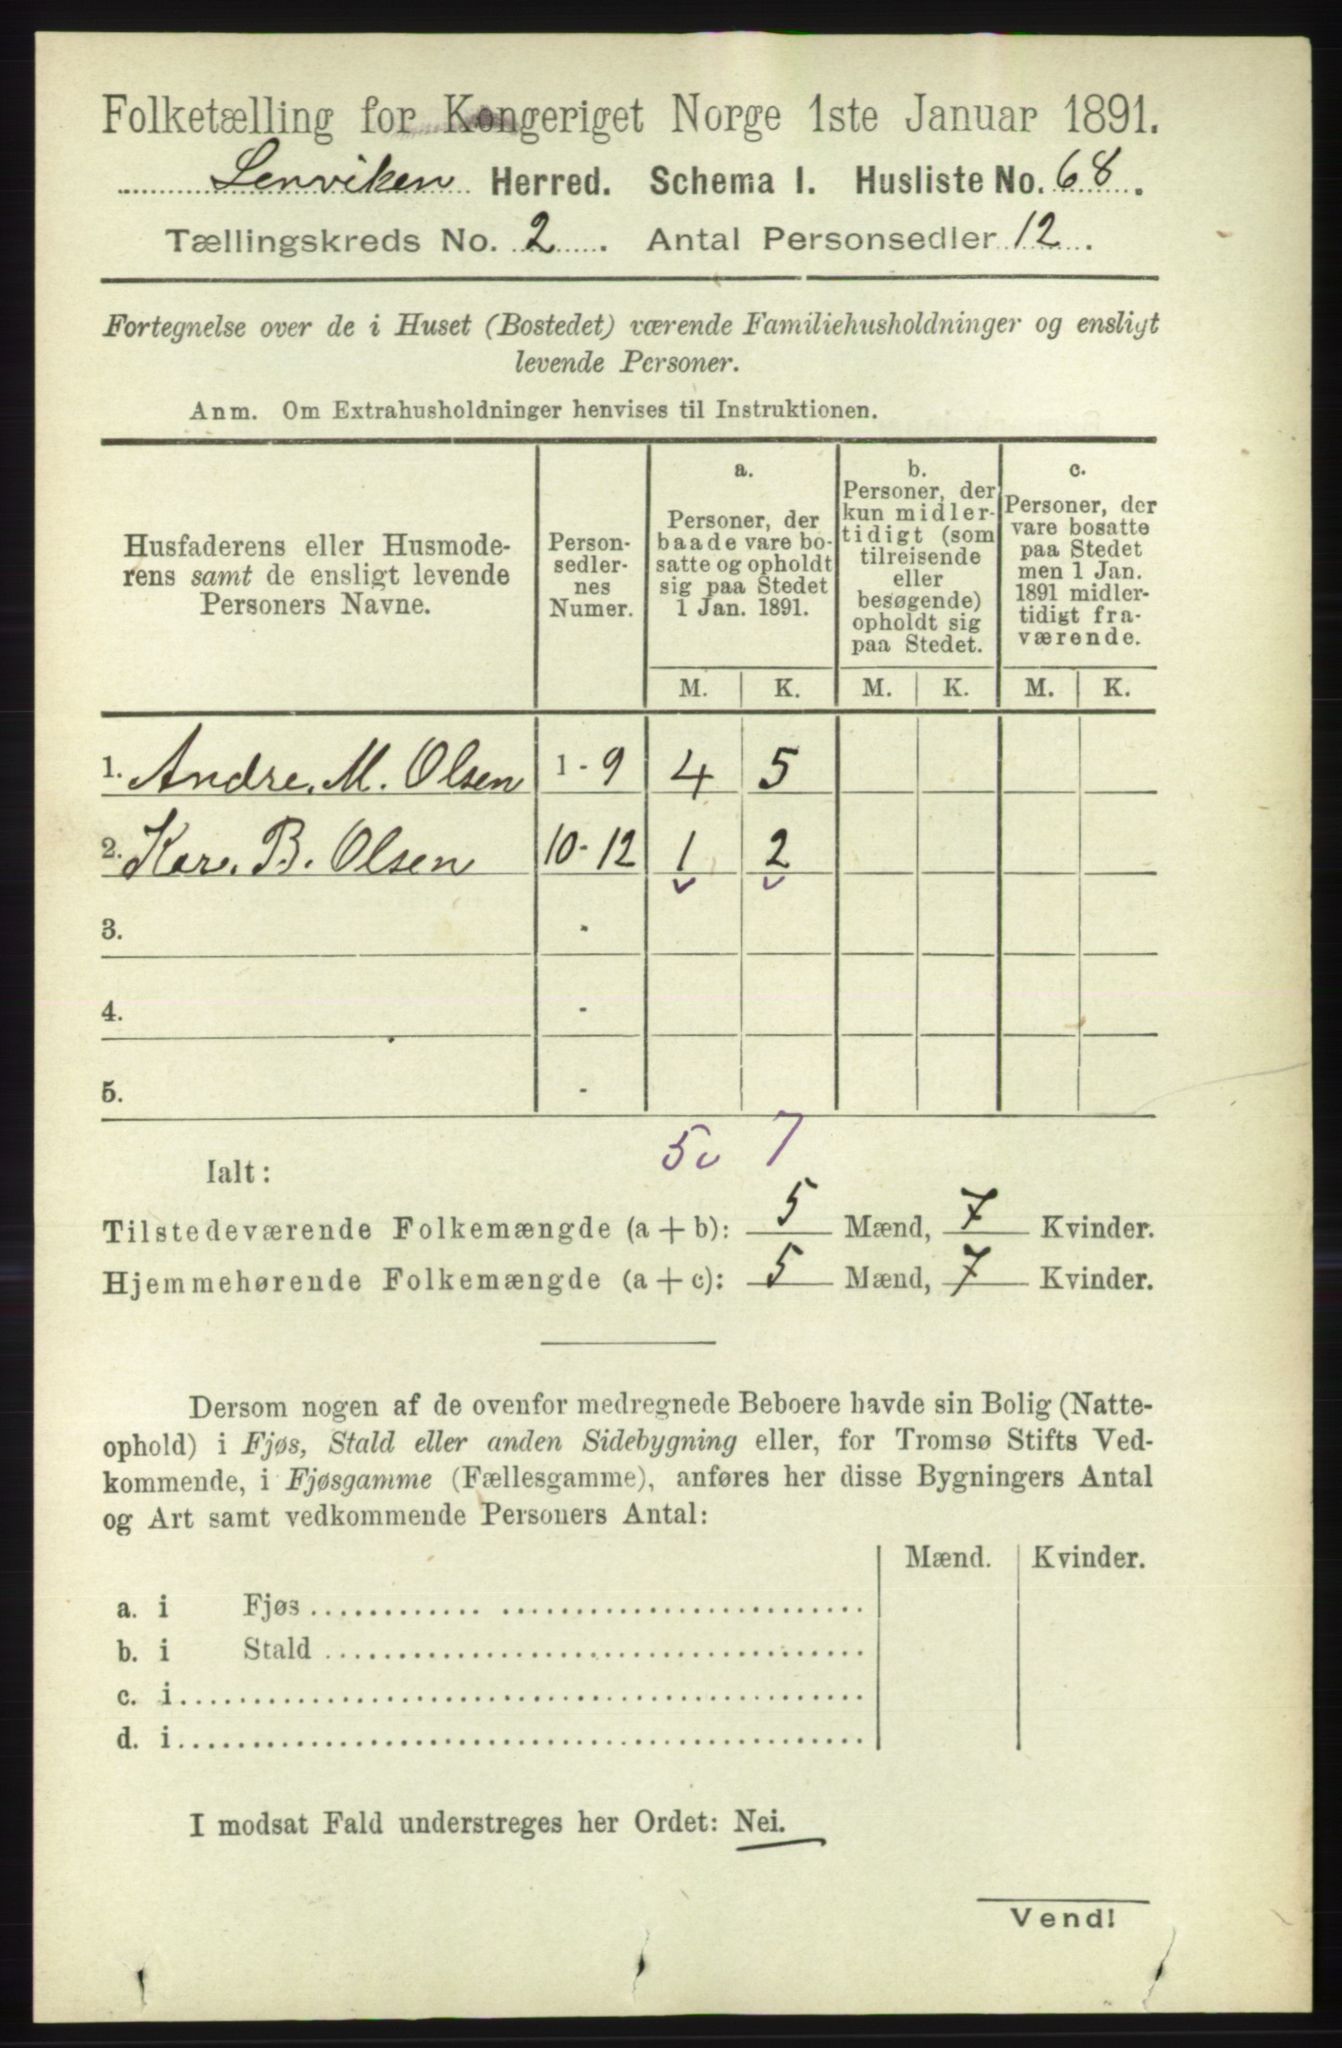 Folketælling for Kongeriget Norge 1ste Januar 1891.
Lenviken Herred. Schema I. Husliste No. 68.
Tællingskreds No. 2. Antal Personsedler 12.
Fortegnelse over de i Huset (Bostedet) værende Familiehusholdninger og ensligt
levende Personer.
Anm. Om Extrahusholdninger henvises til Instruktionen.
Husfaderens eller Husmode-
rens samt de ensligt levende
Personers Navne.
Person-
sedler-
nes
Numer.
a.
Personer, der
baade vare bo-
satte og opholdt
sig paa Stedet
1 Jan. 1891.
b.
Personer, der
kun midler-
tidigt (som
tilreisende
eller
besøgende)
opholdt sig
paa Stedet.
c.
Personer, der
vare bosatte
paa Stedet
men 1 Jan.
1891 midler-
tidigt fra-
værende.
M. K. M. K. M. K.
1. Andre. M. Olsen 1 - 9 4 5
2. Kare. B. Olsen 10 - 12 1 2
3. -
4. -
5. -
5 7
Ialt:
Tilstedeværende Folkemængde (a + b): 5 Mænd, 7 Kvinder.
Hjemmehørende Folkemængde (a + c): 5 Mænd, 7 Kvinder.
Dersom nogen af de ovenfor medregnede Beboere havde sin Bolig (Natte-
ophold) i Fjøs, Stald eller anden Sidebygning eller, for Tromsø Stifts Ved-
kommende, i Fjøsgamme (Fællesgamme), anføres her disse Bygningers Antal
og Art samt vedkommende Personers Antal:
Mænd. Kvinder.
a. i Fjøs
b. i Stald
c. i
d. i
I modsat Fald understreges her Ordet: Nei.
Vend!